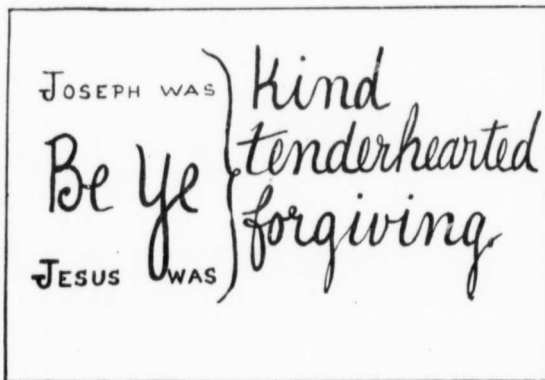 JOSEPH WAS
Be Ye
JESUS WAS
kind
tenderhearted
forgiving.